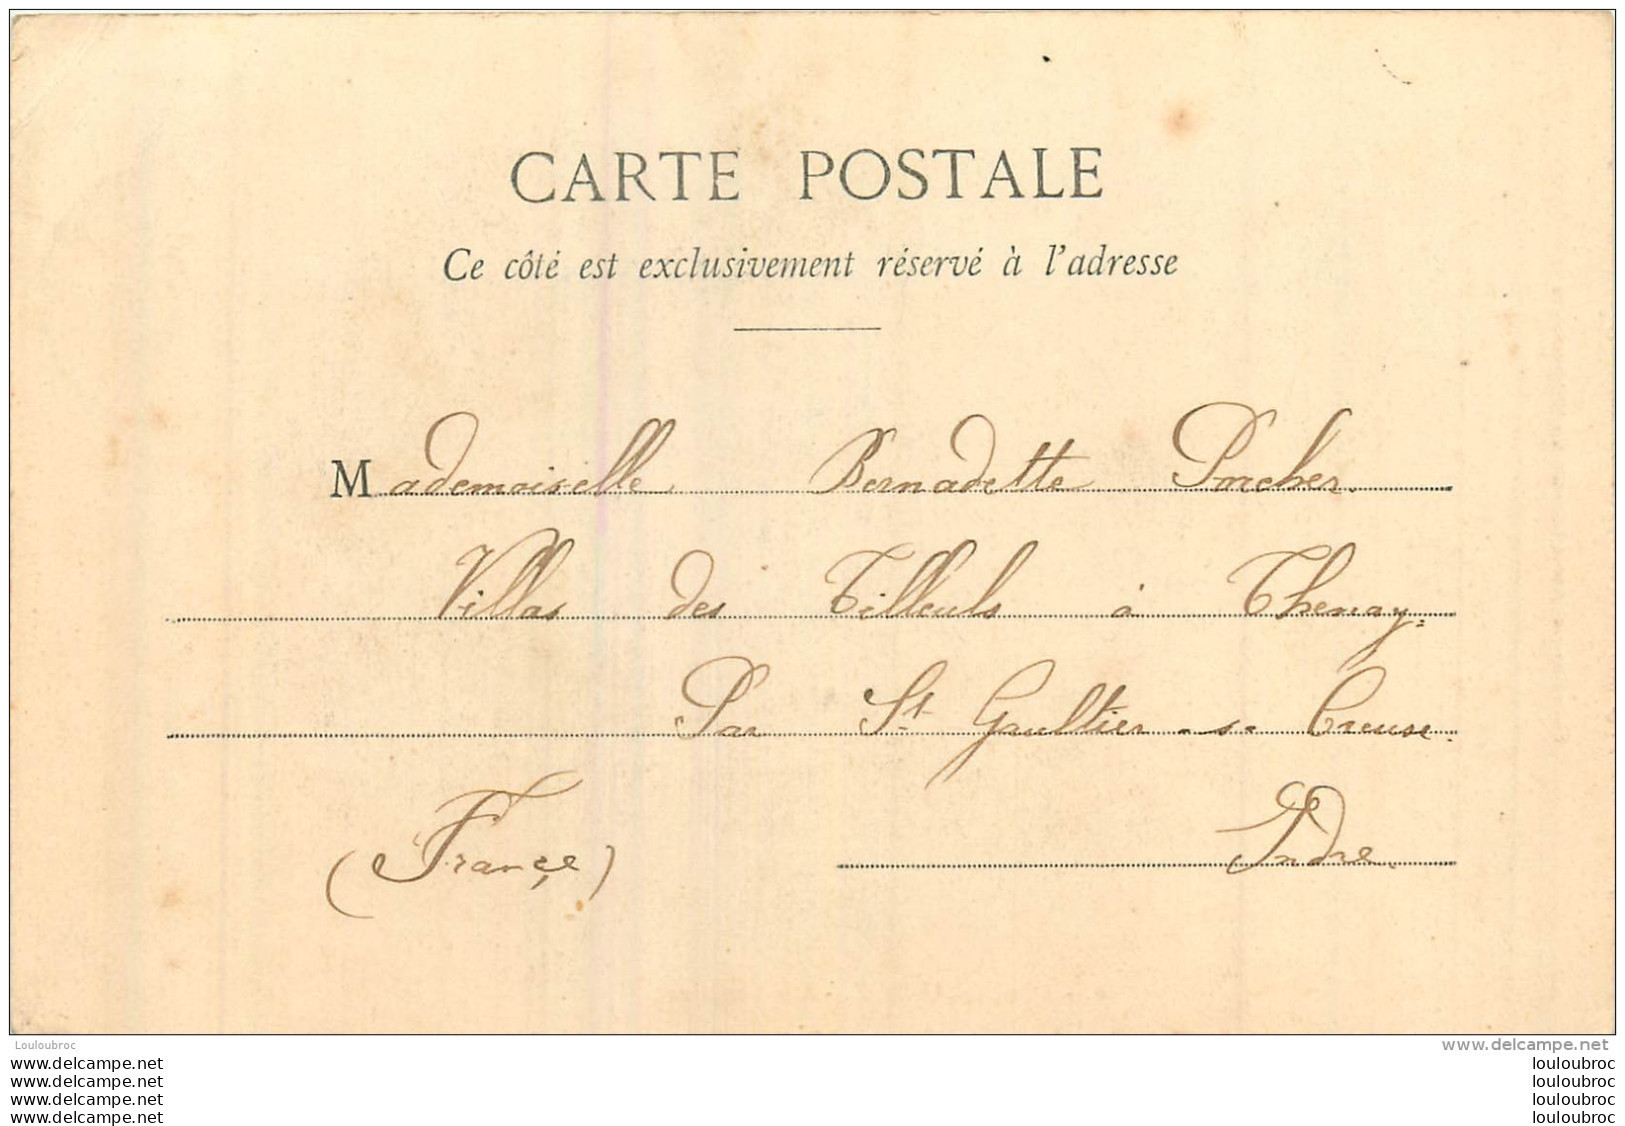 CARTE POSTALE
Ce côté est exclusivement réservé à l'adresse
Mademoiselle Bernadette Porcher.
Villas des Tilleuls à Thenay
Par St Gaultier -s- Creuse.
(France) Indre.
Louloubroc
www.delcampe.net
www.delcampe.net louloubroc
www.delcampe.net louloubroc
www.delcampe.net louloubroc
www.delcampe.net louloubroc